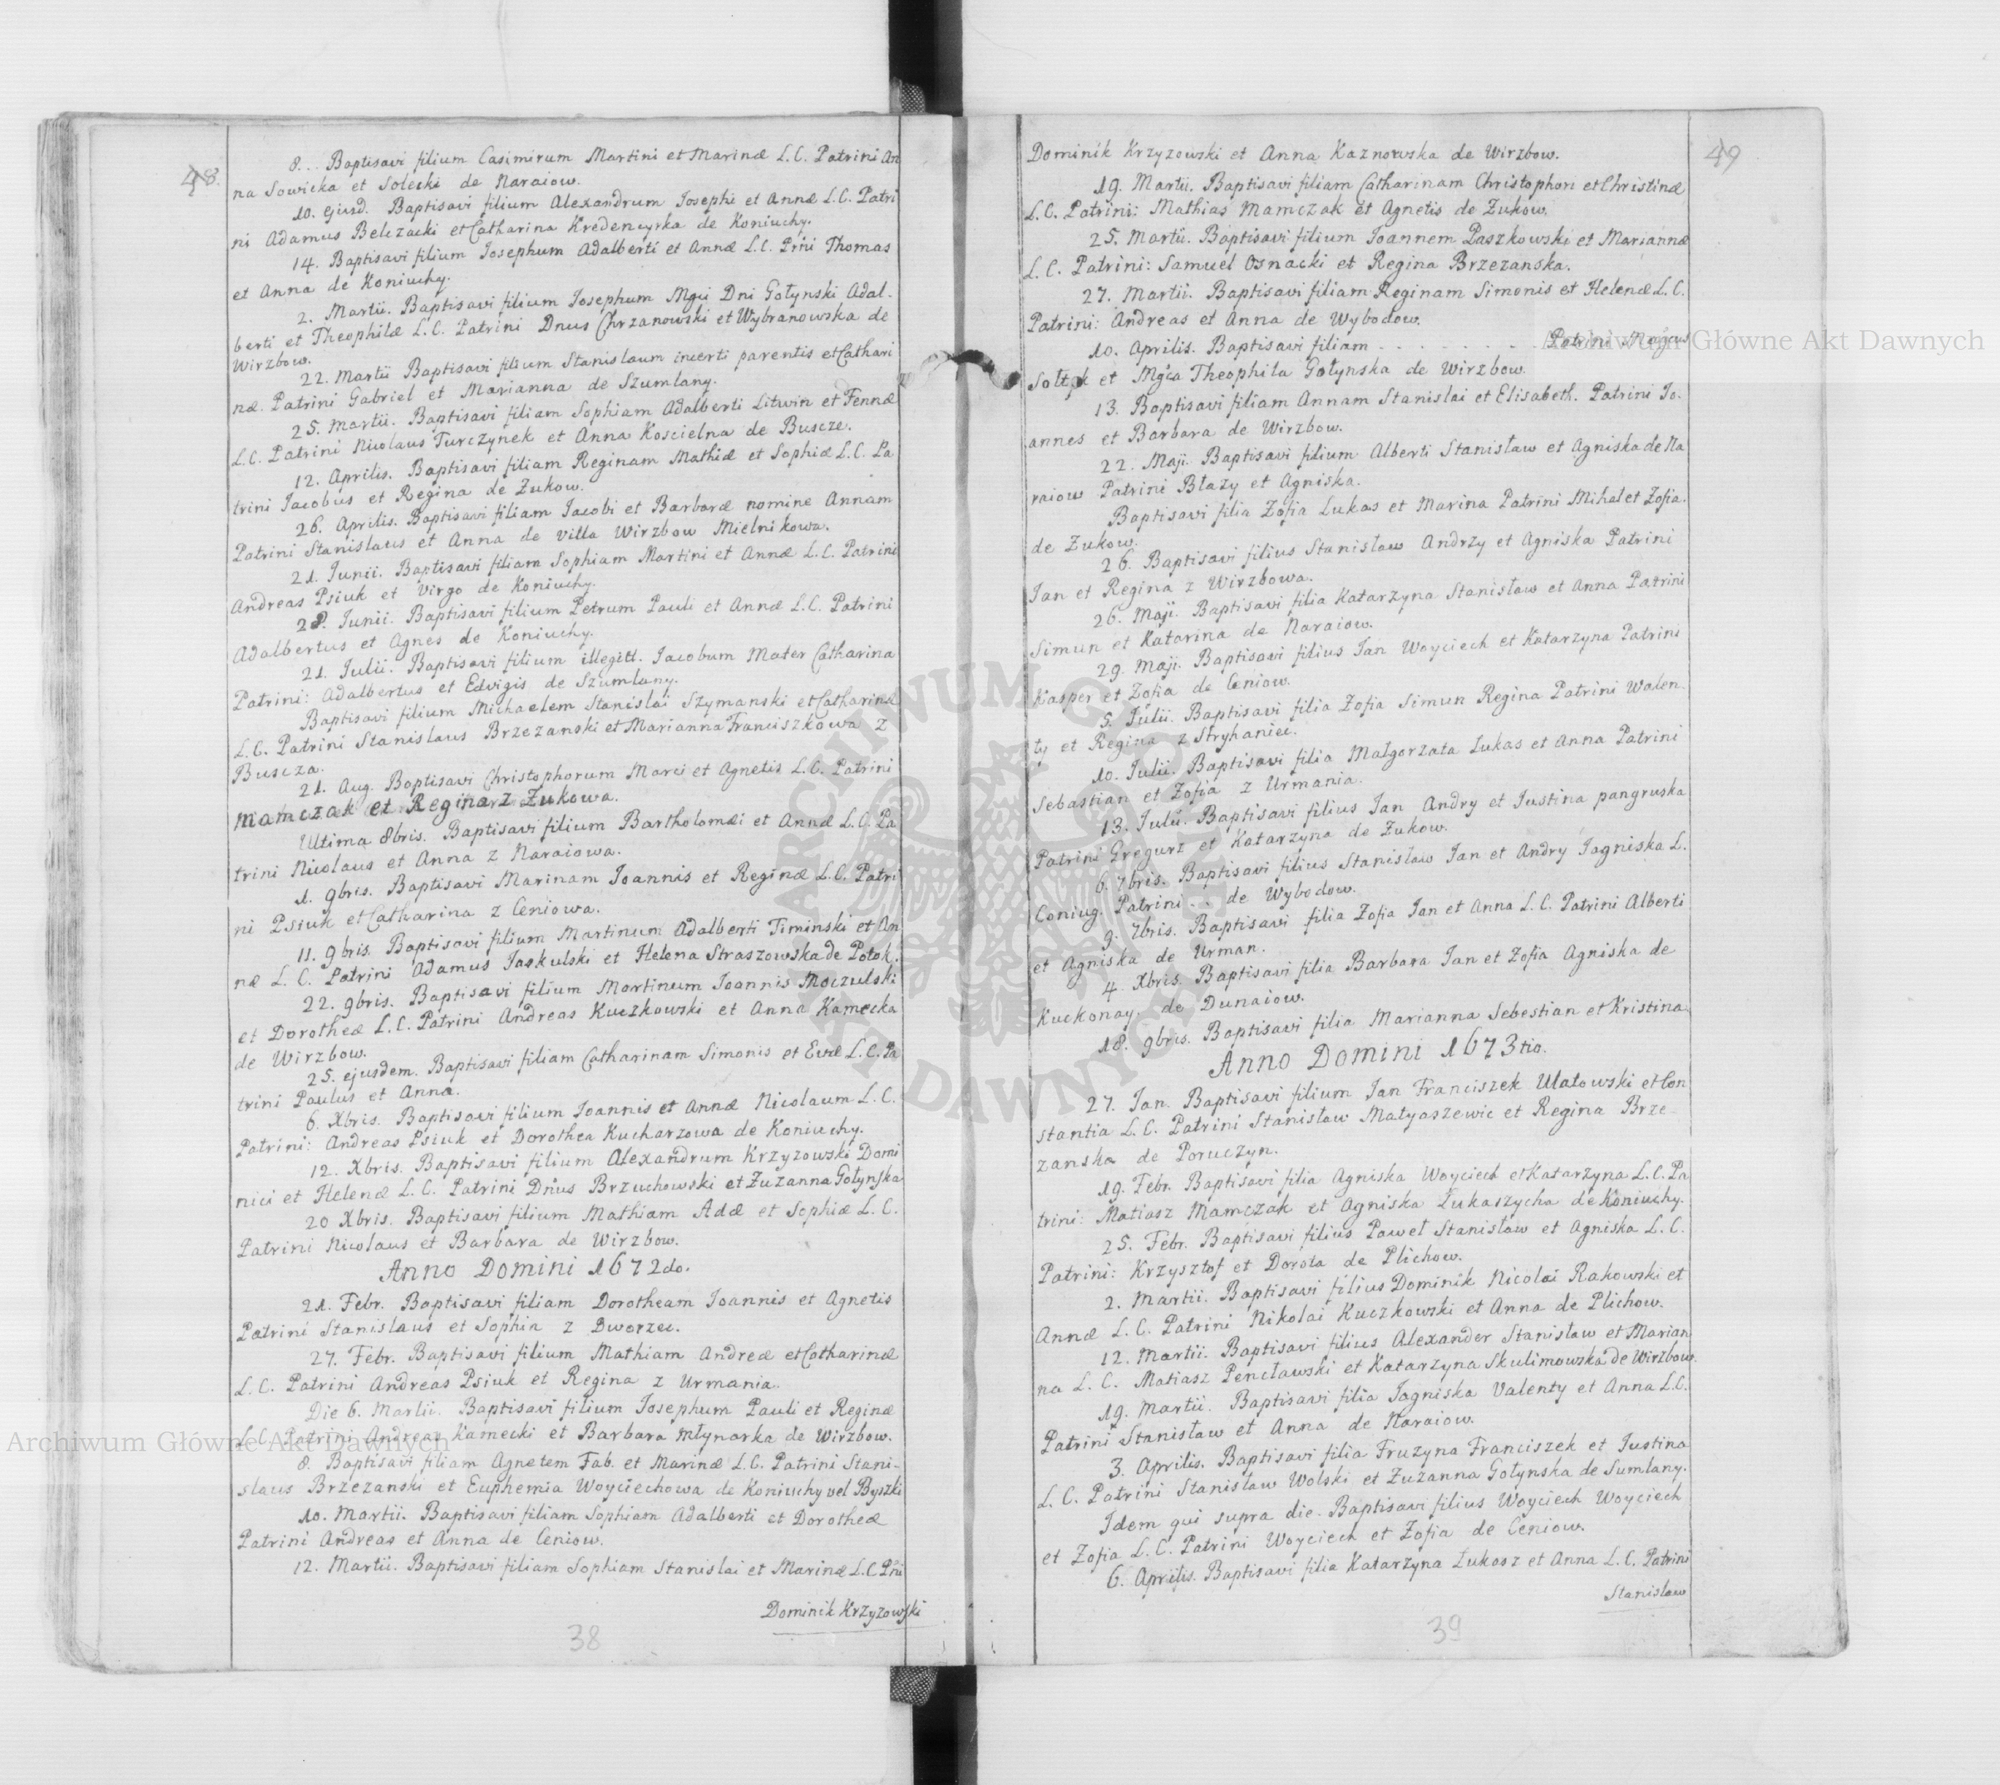 48.
8... Baptisavi filium Casimirum Martini et Marinæ L.C. Patrini An
na Sowicka et Solecki de Naraiow.
10. ejusd. Baptisavi filium Alexandrum Josephi et Annæ L.C. Patri
ni Adamus Belczacki et Catharina Kredencyrka de Koniuchy.
14. Baptisavi filium Josephum Adalberti et Annæ L.C. Prini Thomas
et Anna de Koniuchy.
2. Martii. Baptisavi filium Josephum Mgci Dni Gołynski Adal-
berti et Theophilæ L.C. Patrini Dnus Chrzanowski et Wybranowska de
Wirzbow.
22. Martii Baptisavi filium Stanislaum incerti parentis et Cathari
næ. Patrini Gabriel et Marianna de Szumlany.
25. Martii. Baptisavi filiam Sophiam Adalberti Litwin et Fennæ
L.C. Patrini Nicolaus Turczynek et Anna Koscielna de Buscze.
12. Aprilis. Baptisavi filiam Reginam Mathiæ et Sophiæ L.C. Pa
trini Jacobus et Regina de Zukow.
26. Aprilis. Baptisavi filiam Jacobi et Barbaræ nomine Annam
Patrini Stanislaus et Anna de villa Wirzbow Mielnikowa.
21. Junii. Baptisavi filiam Sophiam Martini et Annæ L.C. Patrini
Andreas Psiuk et Virgo de Koniuchy.
28. Junii. Baptisavi filium Petrum Pauli et Annæ L.C. Patrini
Adalbertus et Agnes de Koniuchy.
21. Julii. Baptisavi filium illegitt. Jacobum Mater Catharina
Patrini: Adalbertus et Edvigis de Szumlany.
Baptisavi filium Michaelem Stanislai Szymanski et Catharinæ
L.C. Patrini Stanislaus Brzezanski et Marianna Franciszkowa z
Buscza.
21. Aug. Baptisavi Christophorum Marci et Agnetis L.C. Patrini
Mamczak et Regina z Żukowa.
Ultima 8bris. Baptisavi filium Bartholomæi et Annæ L.C. Pa
trini Nicolaus et Anna z Naraiowa.
1. 9bris. Baptisavi Marinam Joannis et Reginæ L.C. Patri
ni Psiuk et Catharina z Ceniowa.
11. 9bris. Baptisavi filium Martinum Adalberti Timinski et An
næ L. C. Patrini Adamus Jaskulski et Helena Straszowska de Potok.
22. 9bris. Baptisavi filium Martinum Joannis Moczulski
et Dorotheæ L.C. Patrini Andreas Kuczkowski et Anna Kamecka
de Wirzbow.
25. ejusdem. Baptisavi filiam Catharinam Simonis et Evæ L.C. Pa
trini Paulus et Anna.
6. Xbris. Baptisavi filium Joannis et Annæ Nicolaum L.C.
Patrini: Andreas Psiuk et Dorothea Kucharzowa de Koniuchy.
12. Xbris. Baptisavi filium Alexandrum Krzyzowski Domi
nici et Helenæ L.C. Patrini Dnus Brzuchowski et Zuzanna Gołynska
20 Xbris. Baptisavi filium Mathiam Adæ et Sophiæ L.C.
Patrini Nicolaus et Barbara de Wirzbow.
Anno Domini 1672do.
21. Febr. Baptisavi filiam Dorotheam Joannis et Agnetis
Patrini Stanislaus et Sophia z Dworzec.
27. Febr. Baptisavi filium Mathiam Andreæ et Catharinæ
L.C. Patrini Andreas Psiuk et Regina z Urmania.
Die 6. Martii. Baptisavi filium Josephum Pauli et Reginæ
L.C. Patrini Andreas Kamecki et Barbara Młynarka de Wirzbow.
8. Baptisavi filiam Agnetem Fab. et Marinæ L.C. Patrini Stani-
slaus Brzezanski et Euphemia Woyciechowa de Koniuchy vel Byszki
10. Martii. Baptisavi filiam Sophiam Adalberti et Dorotheæ
Patrini Andreas et Anna de Ceniow.
12. Martii. Baptisavi filiam Sophiam Stanislai et Marinæ L.C. Prni
Dominik Krzyzowski
38
49
Dominik Krzyzowski et Anna Kaznowska de Wirzbow.
19. Martii. Baptisavi filiam Catharinam Christophori et Christinæ
L.C. Patrini: Mathias Mamczak et Agnetis de Zukow.
25. Martii. Baptisavi filium Joannem Paszkowski et Mariannæ
L.C. Patrini: Samuel Osnacki et Regina Brzezanska.
27. Martii. Baptisavi filiam Reginam Simonis et Helenæ L.C.
Patrini: Andreas et Anna de Wybodow.
10. Aprilis. Baptisavi filiam . . . . . . . . . Patrini Magcus
Sołtyk et Mgca Theophila Gołynska de Wirzbow.
13. Baptisavi filiam Annam Stanislai et Elisabeth. Patrini Jo-
annes et Barbara de Wirzbow.
22. Maji. Baptisavi filium Alberti Stanisław et Agniska de Na
raiow Patrini Błazy et Agniska.
Baptisavi filia Zofia Lukas et Marina Patrini Mihal et Zofia.
de Zukow.
26. Baptisavi filius Stanisław Andrzy et Agniska Patrini
Jan et Regina z Wirzbowa.
26. Maji. Baptisavi filia Katarzyna Stanisław et Anna Patrini
Simun et Katarina de Naraiow.
29. Maji. Baptisavi filius Jan Woyciech et Katarzyna Patrini
Kasper et Zofia de Ceniow.
5. Julii. Baptisavi filia Zofia Simun Regina Patrini Walen-
ty et Regina z Stryhaniec.
10. Julii. Baptisavi filia Małgorzata Łukas et Anna Patrini
Sebastian et Zofia z Urmania.
13. Julii. Baptisavi filius Jan Andry et Justina pangruska
Patrini Gregurz et Katarzyna de Zukow.
6. 7bris. Baptisavi filius Stanisław Jan et Andry Jagniska L.
Coniug. Patrini . . de Wybodow.
9. 7bris. Baptisavi filia Zofia Jan et Anna L.C. Patrini Alberti
et Agniska de Urman.
4. Xbris. Baptisavi filia Barbara Jan et Zofia Agniska de
Kuckonay. de Dunaiow.
18. 9bris. Baptisavi filia Marianna Sebestian et Kristina
Anno Domini 1673tio.
27. Jan. Baptisavi filium Jan Franciszek Ulatowski et Con
stantia L.C. Patrini Stanisław Matyaszewic et Regina Brze-
zanska de Poruczyn.
19. Febr. Baptisavi filia Agniska Woyciech et Katarzyna L.C. Pa
trini: Matiasz Mamczak et Agniska Łukaszycha de Koniuchy.
25. Febr. Baptisavi filius Paweł Stanisław et Agniska L.C.
Patrini: Krzysztof et Dorota de Plichow.
2. Martii. Baptisavi filius Dominik Nicolai Rakowski et
Annæ L.C. Patrini Nikolai Kuczkowski et Anna de Plichow.
12. Martii. Baptisavi filius Alexander Stanisław et Marian
na L.C. Matiasz Pencławski et Katarzyna Skulimowska de Wirzbow.
19. Martii. Baptisavi filia Jagniska Valenty et Anna L.C.
Patrini Stanisław et Anna de Naraiow.
3. Aprilis. Baptisavi filia Fruzyna Franciszek et Justina
L.C. Patrini Stanisław Wolski et Zuzanna Gołynska de Sumlany.
Idem qui supra die. Baptisavi filius Woyciech Woyciech
et Zofia L.C. Patrini Woyciech et Zofia de Ceniow.
6. Aprilis. Baptisavi filia Katarzyna Łukasz et Anna L.C. Patrini
Stanisław
39
Archiwum Główne Akt Dawnych
Archiwum Główne Akt Dawnych
ARCHIWUM GŁÓWNE AKT DAWNYCH